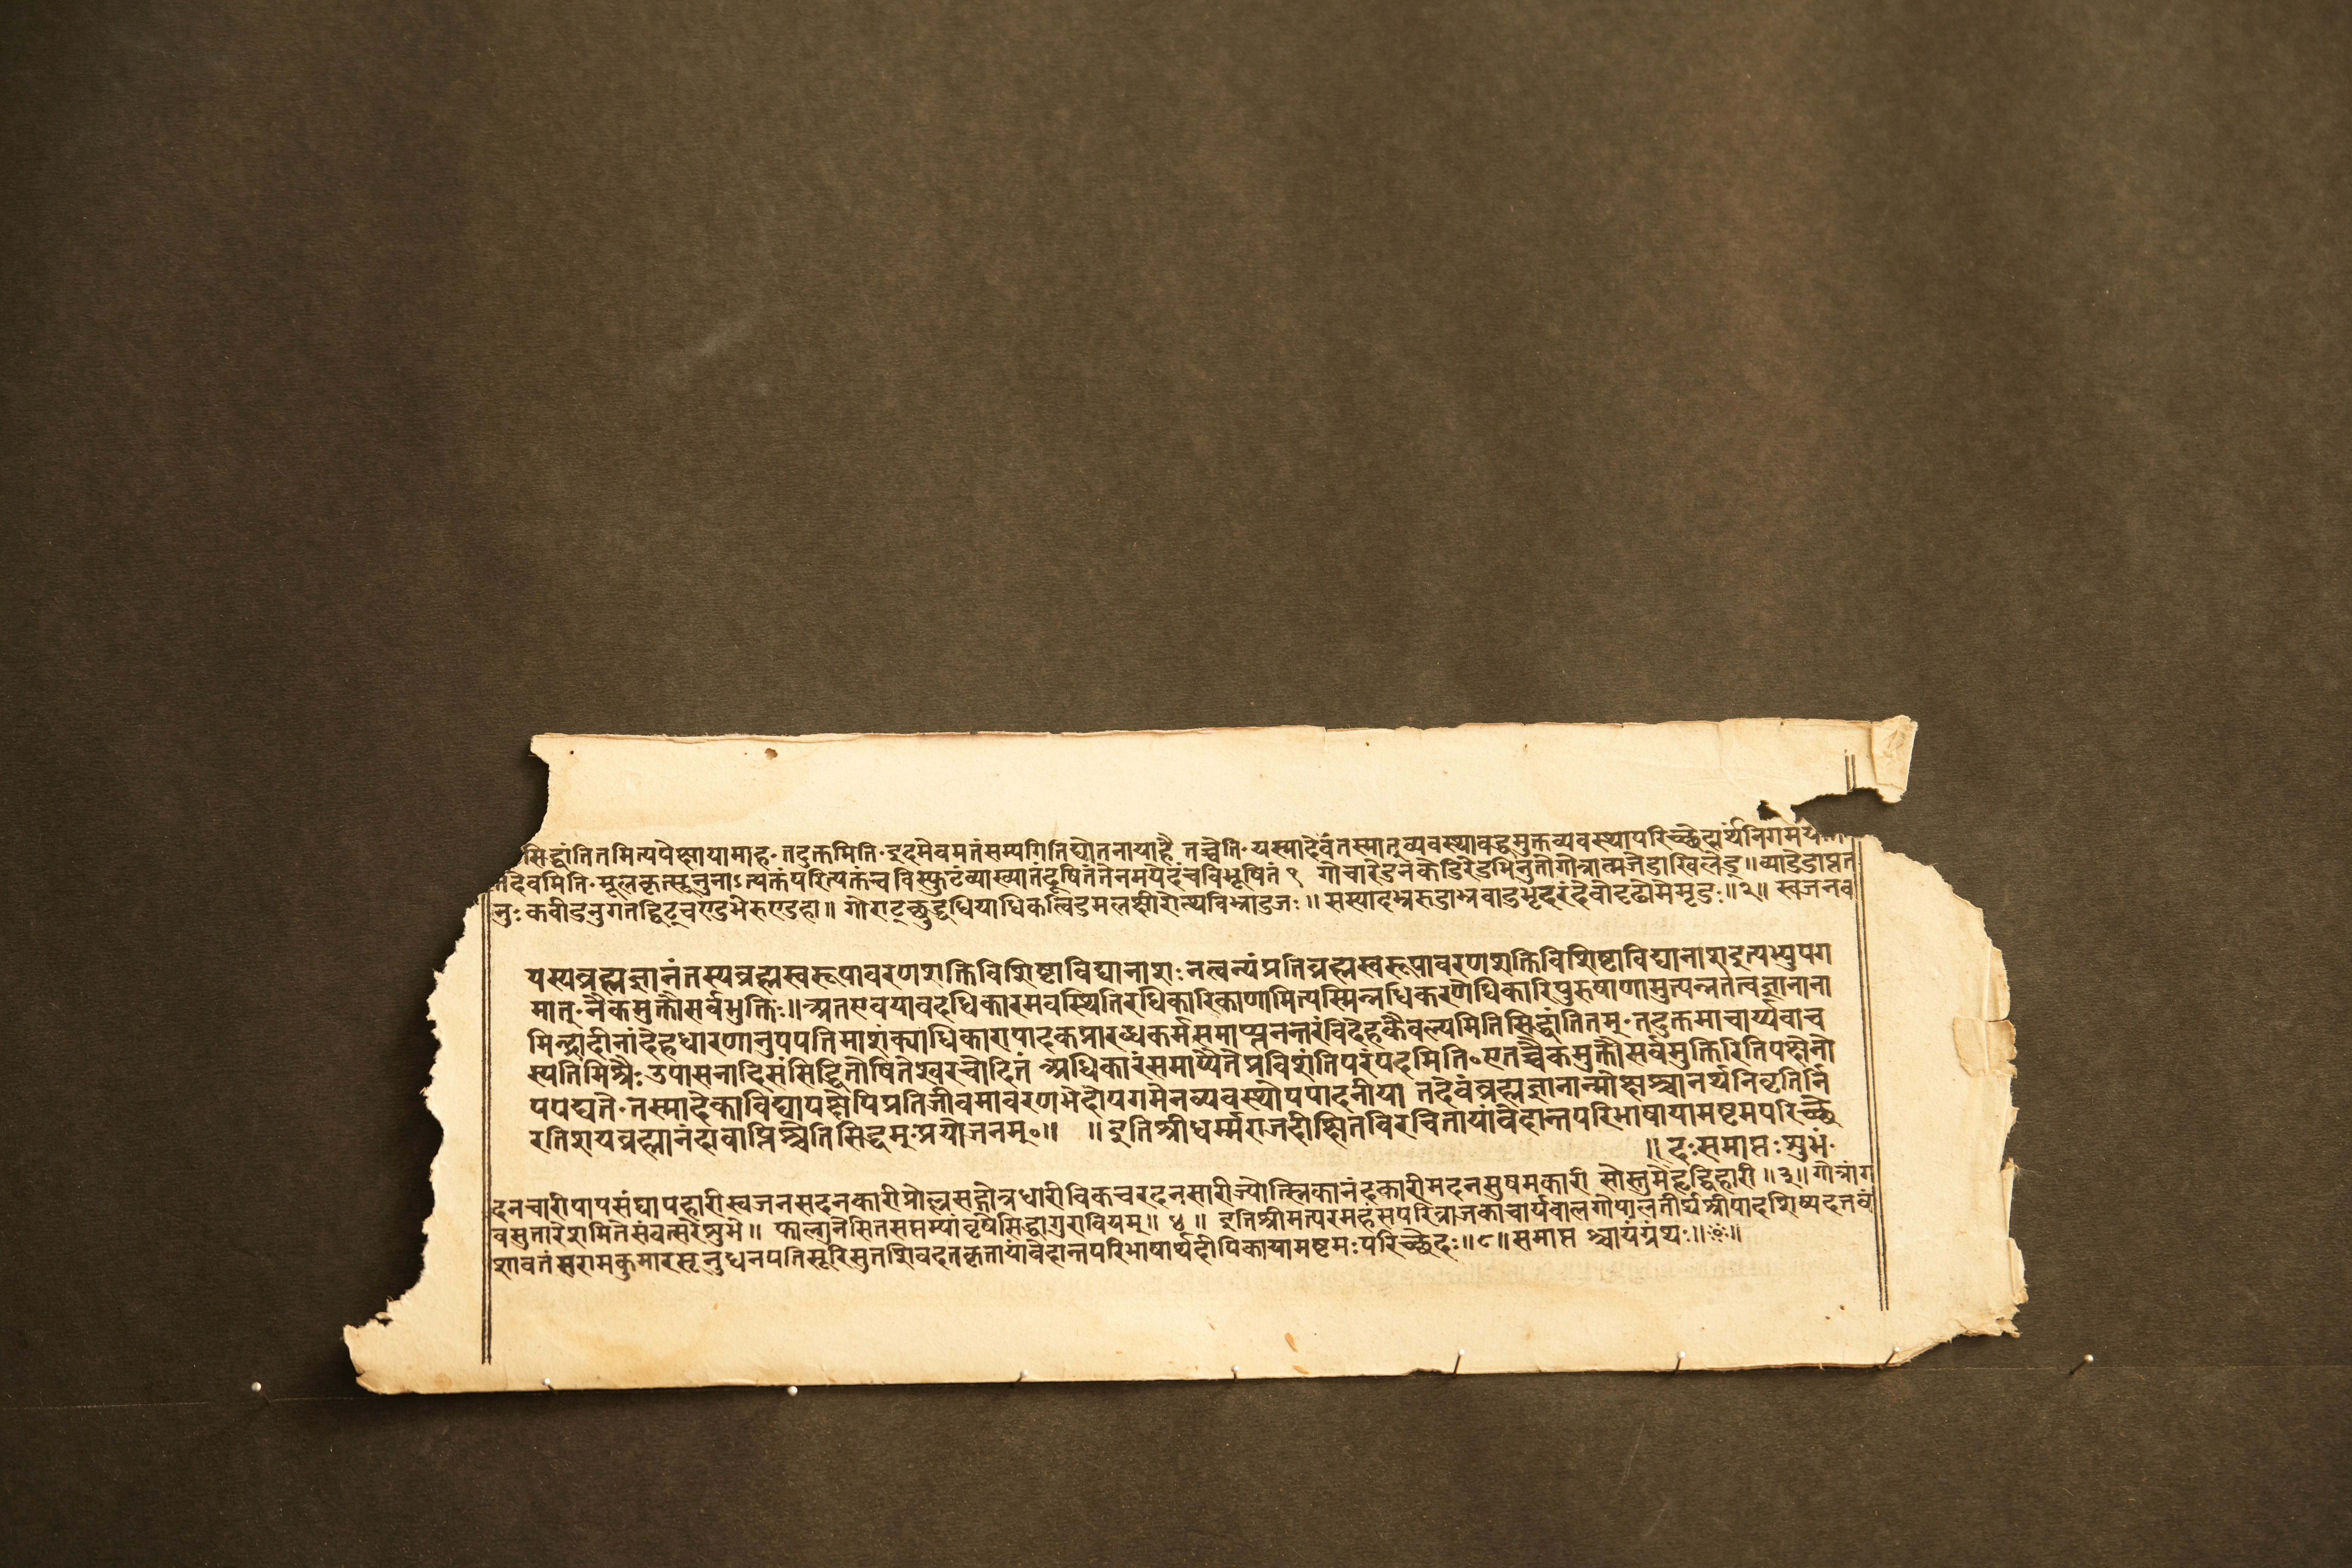 सिद्धांतितमित्यपेक्षायामाह॰ तदुक्तमिति॰ इदमेवमतंसम्यगितिद्योतनायाहै तच्चेति॰ यस्मादेवंतस्मात् व्यवस्थावद्धमुक्तव्यवस्थापरिच्छेदार्थंनिगमय
तदेवमिति॰ मूलकृत्सूनुनाऽत्यक्तंपरित्यक्तंच विस्फुटंव्याख्यातंदूषितंतेनमयेदंचविभूषितं १ गोचारेडनकैडिरेडभिनुतोगोत्रात्मजेडाखिलेड्॥
नुः कवीडनुगतद्विट्चण्डभेरुण्डहा॥ ॥२॥ स्वजनव
यस्यव्रह्मज्ञानंतस्यव्रह्मस्वरूपावरणशक्तिविशिष्टाविद्यानाशः नत्वन्यंप्रतिव्रह्मस्वरूपावरणशक्तिविशिष्टाविद्यानाशइत्यभ्युपग
मात्॰ नैकमुक्तौसर्वमुक्तिः॥ अतएवयावदधिकारमवस्थितिरधिकारिकाणामित्यस्मिन्नधिकरणेधिकारिपुरुषाणामुत्पन्नतत्वज्ञानाना
मिन्द्रादीनांदेहधारणानुपपत्तिमाशंक्याधिकारापादकप्रारब्धकर्मसमाप्त्यनन्तरंविदेहकैवल्यमितिसिद्धांतितम्॰ तदुक्तमाचार्य्यवाच
स्पतिमिश्रैः उपासनादिसंसिद्धितोषितेश्वरचोदितं अधिकारंसमाप्यैतेप्रविशंतिपरंपदमिति॰ एतच्चैकमुक्तौसर्वमुक्तिरितिपक्षेनो
पपद्यते॰ तस्मादेकाविद्यापक्षेपिप्रतिजीवमावरणभेदोपगमेनव्यवस्थोपपादनीया तदेवंव्रह्मज्ञानान्मोक्षःश्चानर्थनिवृतिर्नि
रतिशयव्रह्मानंदावाप्तिश्चेतिसिद्धम् प्रयोजनम्॰॥ ॥ इतिश्रीधर्म्मराजदीक्षितविरचितायांवेदान्तपरिभाषायामष्टमपरिच्छे
॥ दःसमाप्तः शुभं॰
दनचारीपापसंघापहारीस्वजनसदनकारीप्रोल्लसद्गोत्रधारीविकचरदनसारीज्योत्स्निकानंदकारीमदनसुषमकारी सोस्तुमेहृद्विहारी॥३॥ गोत्रांग
वसुतारेशमितेसंवत्सरेशुभे॥ फाल्गुनेसितसप्तम्यांवृषेसिद्धागुराविय़म्॥ ४॥ इतिश्रीमत्परमहंसपरिव्राजकाचार्यवालगोपालतीर्थश्रीपादशिष्यदत्तवं
शावतंसरामकुमारसूनुधनपतिसूरिसुतशिवदत्तकृतायांवेदान्तपरिभाषार्थदीपिकायामष्टमःपरिच्छेदः॥८॥ समाप्तश्चायंग्रंथः॥